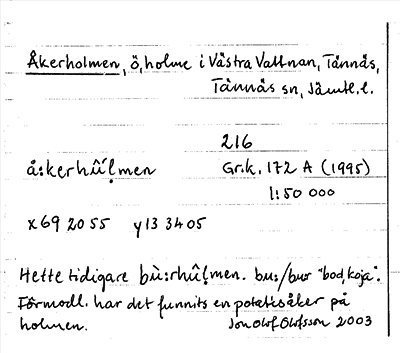 Åkerholmen, ö, holme i Västra Vattnan, Tännäs,
Tännäs sn, Jämtl. l.
216
å:kerhû´ḷmen Gr.k. 172 A (1995)
1:50 000
x 69 20 55 y 13 34 05
Hette tidigare bù:rhû´ḷmen. bu:/bur "bod, koja".
Förmodl. har det funnits en potatisåker på
holmen. Jon Olof Olofsson 2003